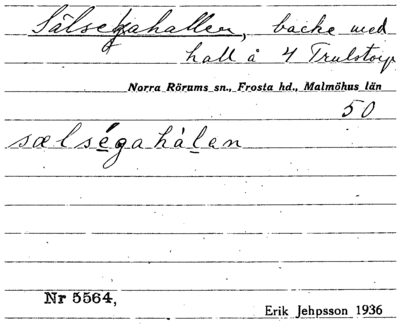 Sälsegahallen, backe med
hall å 4 Trulstorp
Norra Rörums sn., Frosta hd., Malmöhus län
50
sælségahálan
Nr 5564,
Erik Jehpsson 1936